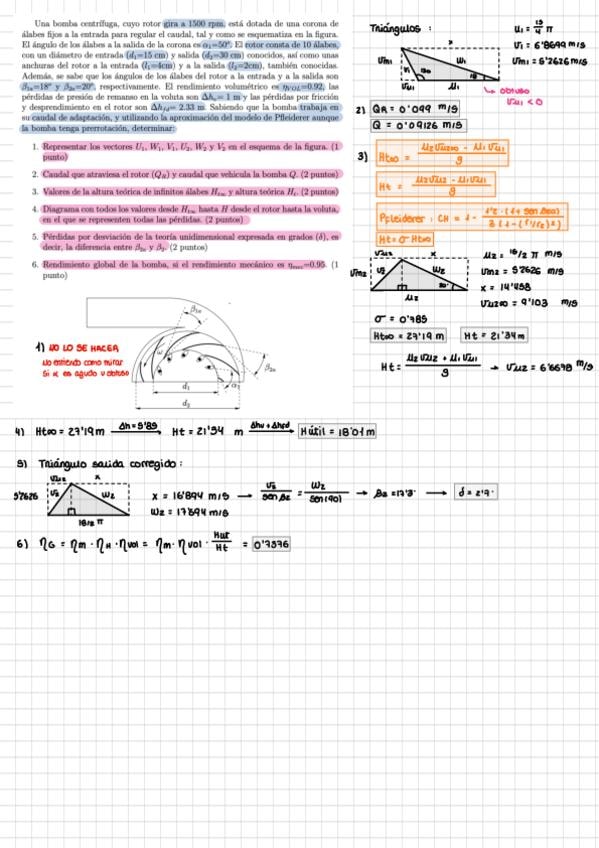 Una bomba centrífuga, cuyo rotor gira a 1500 rpm, está dotada de una corona de
álabes fijos a la entrada para regular el caudal, tal y como se esquematiza en la figura.
El ángulo de los álabes a la salida de la corona es α₁=50°. El rotor consta de 10 álabes,
con un diámetro de entrada (d₁=15 cm) y salida (d₂=30 cm) conocidos, así como unas
anchuras del rotor a la entrada (l₁=4cm) y a la salida (l₂=2cm), también conocidas.
Además, se sabe que los ángulos de los álabes del rotor a la entrada y a la salida son
β₁ₐ=18° y β₂ₐ=20°, respectivamente. El rendimiento volumétrico es ηVOL=0.92, las
pérdidas de presión de remanso en la voluta son Δhᵥ= 1 m y las pérdidas por fricción
y desprendimiento en el rotor son Δh= 2.33 m. Sabiendo que la bomba trabaja en
su caudal de adaptación, y utilizando la aproximación del modelo de Pfleiderer aunque
la bomba tenga prerrotación, determinar:
1. Representar los vectores U₁, W₁, V₁, U₂, W₂ y V₂ en el esquema de la figura. (1
punto)
2. Caudal que atraviesa el rotor (QR) y caudal que vehicula la bomba Q. (2 puntos)
3. Valores de la altura teórica de infinitos álabes Ht∞ y altura teórica Ht. (2 puntos)
4. Diagrama con todos los valores desde Ht∞ hasta H desde el rotor hasta la voluta,
en el que se representen todas las pérdidas. (2 puntos)
5. Pérdidas por desviación de la teoría unidimensional expresada en grados (δ), es
decir, la diferencia entre β₂ₐ y β₂. (2 puntos)
6. Rendimiento global de la bomba, si el rendimiento mecánico es ηmec=0.95. (1
punto)
1) NO LO SE HACER
No entiendo como mirar
Si α es agudo u obtuso
β₁ₐ
ω
β₂ₐ
α₁
d₁
d₂
Triángulos :
x
Vm1
V1
W1
Vu1
U1
U1 = 15/4 π
V1 = 6'8699 m/s
Vm1 = 5'2626 m/s
obtuso
Vu1 < 0
2) QR = 0'099 m/s
Q = 0'09126 m/s
3) Ht∞ = (U2Vu2∞ - U1Vu1)/g
Ht = (U2Vu2 - U1Vu1)/g
Pfleiderer :
Ht = σ Ht∞
Vu2
x
Vm2
V2
W2
20°
U2
U2 = 15/2 π m/s
Vm2 = 5'2626 m/s
x = 14'458
Vu2∞ = 9'103 m/s
σ = 0'785
Ht∞ = 27'19 m
Ht = 21'34 m
Ht = (U2Vu2 + U1Vu1)/g → Vu2 = 6'6678 m/s
4) Ht∞ = 27'19 m Δh = 5'85 Ht = 21'34 m Hútil = 18'01 m
5) Triángulo salida corregido :
Vu2
x
5'2626
V2
W2
15/2 π
x = 16'894 m/s
W2 = 17'694 m/s
V2/sen β2 = W2/sen(90) → β2 = 17'3° → δ = 2'7°
6) ηG = ηm · ηH · ηvol = ηm · ηvol · Hut/Ht = 0'7376